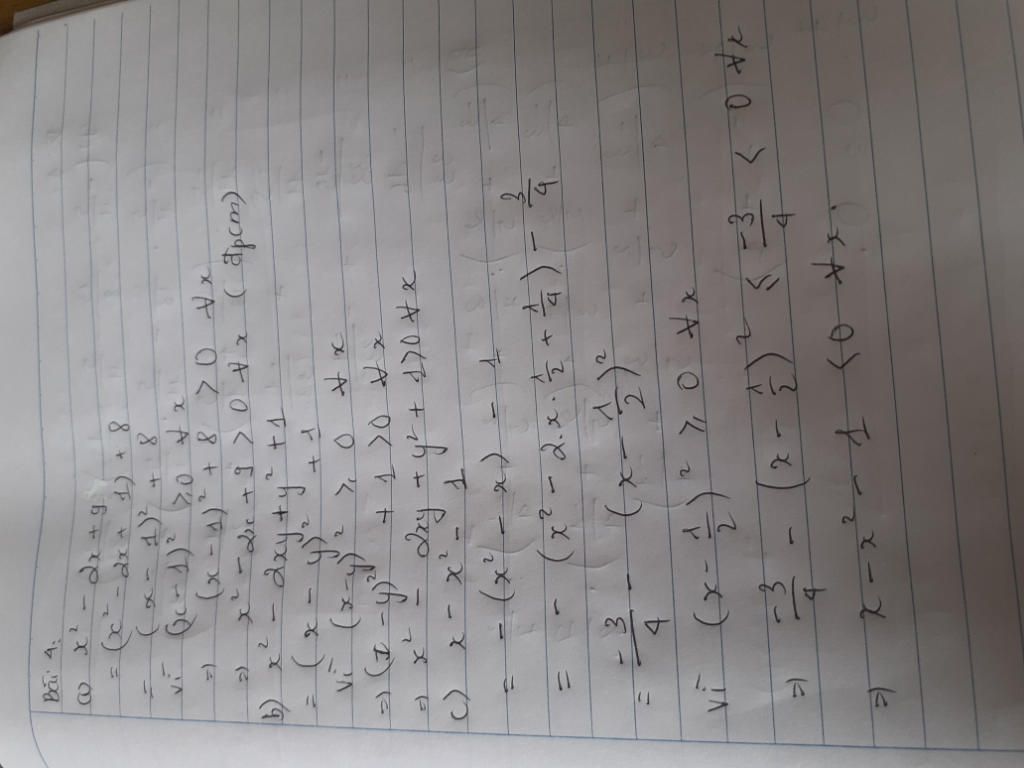 Bài 4:
a) x² - 2x + 9
= (x² - 2x + 1) + 8
= (x - 1)² + 8
Vì (x - 1)² ≥ 0 ∀ x
=> (x - 1)² + 8 > 0 ∀ x
=> x² - 2x + 9 > 0 ∀ x (đpcm)
b) x² - 2xy + y² + 1
= (x - y)² + 1
Vì (x - y)² ≥ 0 ∀ x
=> (x - y)² + 1 > 0 ∀ x
=> x² - 2xy + y² + 1 > 0 ∀ x
c) x - x² - 1
= - (x² - x) - 1
= - (x² - 2.x.1/2 + 1/4) - 3/4
= -3/4 - (x - 1/2)²
Vì (x - 1/2)² ≥ 0 ∀ x
=> -3/4 - (x - 1/2)² ≤ -3/4 < 0 ∀ x
=> x - x² - 1 < 0 ∀ x